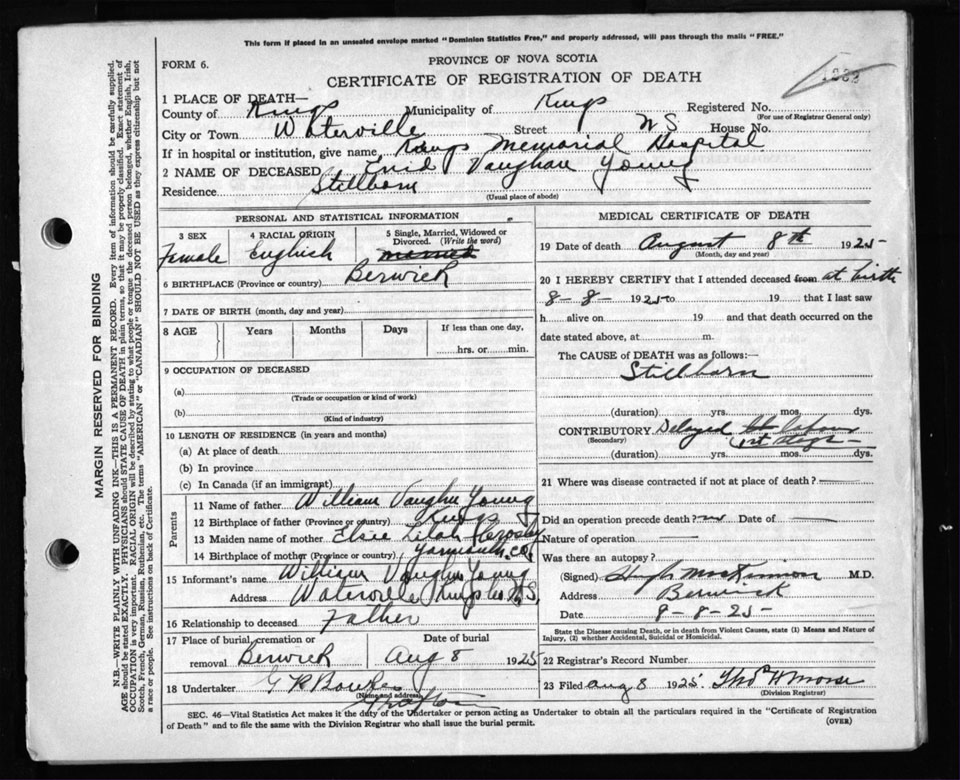 This form if placed in an unsealed envelope marked "Dominion Statistics Free," and properly addressed, will pass through the mails "FREE."
PROVINCE OF NOVA SCOTIA
FORM 6.
CERTIFICATE OF REGISTRATION OF DEATH
1 PLACE OF DEATH—
County of Kings Municipality of Kings Registered No.
(For use of Registrar General only)
City or Town Waterville Street NS House No.
If in hospital or institution, give name Kings Memorial Hospital
2 NAME OF DECEASED Enid Vaughan Young
Residence Stillborn
(Usual place of abode)
PERSONAL AND STATISTICAL INFORMATION
3 SEX
Female
4 RACIAL ORIGIN
English
5 Single, Married, Widowed or Divorced. (Write the word)
6 BIRTHPLACE (Province or country) Berwick
7 DATE OF BIRTH (month, day and year)
8 AGE Years Months Days If less than one day, hrs. or min.
9 OCCUPATION OF DECEASED
(a)
(Trade or occupation or kind of work)
(b)
(Kind of industry)
10 LENGTH OF RESIDENCE (in years and months)
(a) At place of death
(b) In province
(c) In Canada (if an immigrant)
Parents
11 Name of father William Vaughn Young
12 Birthplace of father (Province or country) Kings
13 Maiden name of mother Elsie Lilah Crosby
14 Birthplace of mother (Province or country) Yarmouth Co.
15 Informant's name William Vaughn Young
Address Waterville Kings Co N.S.
16 Relationship to deceased Father
17 Place of burial, cremation or removal Berwick
Date of burial
Aug 8 1925
18 Undertaker G R Bowles
(Name and address)
Grafton
MEDICAL CERTIFICATE OF DEATH
19 Date of death August 8th 1925
(Month, day and year)
20 I HEREBY CERTIFY that I attended deceased from at birth
8-8- 1925 to 19 that I last saw
h alive on 19 and that death occurred on the
date stated above, at m.
The CAUSE of DEATH was as follows:—
Stillborn
(duration) yrs. mos. dys.
CONTRIBUTORY Delayed labour
(Secondary) 1st stage
(duration) yrs. mos. dys.
21 Where was disease contracted if not at place of death?
Did an operation precede death? no Date of
Nature of operation
Was there an autopsy?
(Signed) Hugh MacKinnon M.D.
Address Berwick
Date 8-8-25
State the Disease causing Death, or in death from Violent Causes, state (1) Means and Nature of Injury, (2) whether Accidental, Suicidal or Homicidal.
22 Registrar's Record Number
23 Filed Aug 8 1925 Thos H Morse
(Division Registrar)
SEC. 46—Vital Statistics Act makes it the duty of the Undertaker or person acting as Undertaker to obtain all the particulars required in the "Certificate of Registration
of Death" and to file the same with the Division Registrar who shall issue the burial permit. (OVER)
MARGIN RESERVED FOR BINDING
N.B.—WRITE PLAINLY WITH UNFADING INK—THIS IS A PERMANENT RECORD. Every item of information should be carefully supplied.
AGE should be stated EXACTLY. PHYSICIANS should STATE CAUSE OF DEATH in plain terms, so that it may be properly classified. Exact statement of
OCCUPATION is very important. RACIAL ORIGIN will be described by stating to what people or tongue the deceased person belonged, whether English, Irish,
Scotch, French, German, Russian, Ruthenian, etc. The terms "AMERICAN" or "CANADIAN" SHOULD NOT BE USED as they express citizenship but not
a race or people. See instructions on back of Certificate.